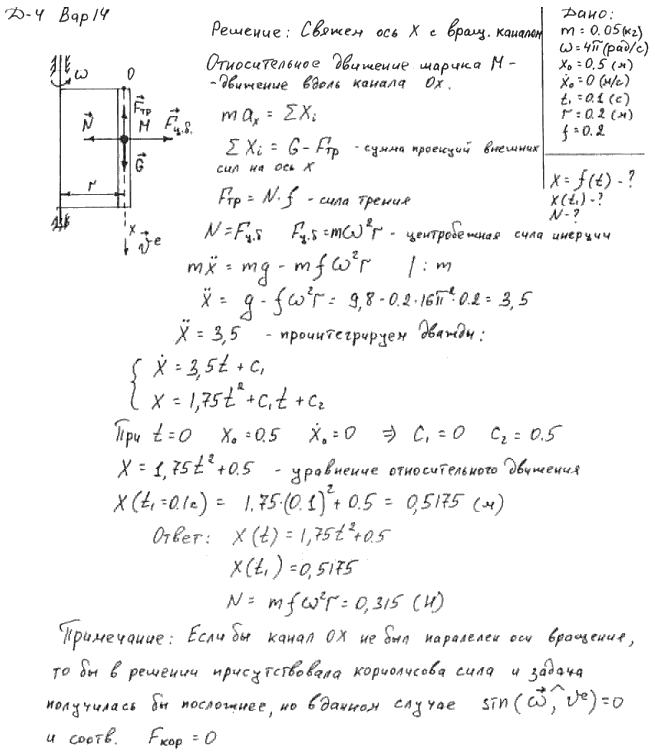 Д-4 Вар 14
Дано:
m = 0.05 (кг)
ω = 4π (рад/с)
x₀ = 0,5 (м)
ẋ₀ = 0 (м/с)
t₁ = 0.1 (с)
r = 0.2 (м)
f = 0.2
X = f(t) - ?
X(t₁) - ?
N - ?
ω
O
F⃗тр
N⃗
M
F⃗ц.б.
G⃗
r
x
v⃗ᵉ
Решение: Свяжем ось X с вращ. каналом
Относительное движение шарика М -
- движение вдоль канала Ox.
m aₓ = ΣXᵢ
ΣXᵢ = G - Fтр - сумма проекций внешних
сил на ось X
Fтр = N·f - сила трения
N = Fц.б Fц.б = mω²r - центробежная сила инерции
mẍ = mg - mfω²r | : m
ẍ = g - fω²r = 9,8 - 0.2·16π²·0.2 = 3,5
ẍ = 3,5 - проинтегрируем дважды:
ẋ = 3,5t + c₁
x = 1,75t² + c₁t + c₂
При t = 0 X₀ = 0.5 ẋ₀ = 0 ⇒ C₁ = 0 C₂ = 0.5
X = 1,75t² + 0.5 - уравнение относительного движения
X(t₁ = 0.1c) = 1,75·(0.1)² + 0.5 = 0,5175 (м)
Ответ: X(t) = 1,75t² + 0.5
X(t₁) = 0,5175
N = mfω²r = 0,315 (Н)
Примечание: Если бы канал OX не был паралелен оси вращения,
то бы в решении присутствовала кориолисова сила и задача
получилась бы посложнее, но в данном случае sin(ω⃗,^vᵉ) = 0
и соотв. Fкор = 0